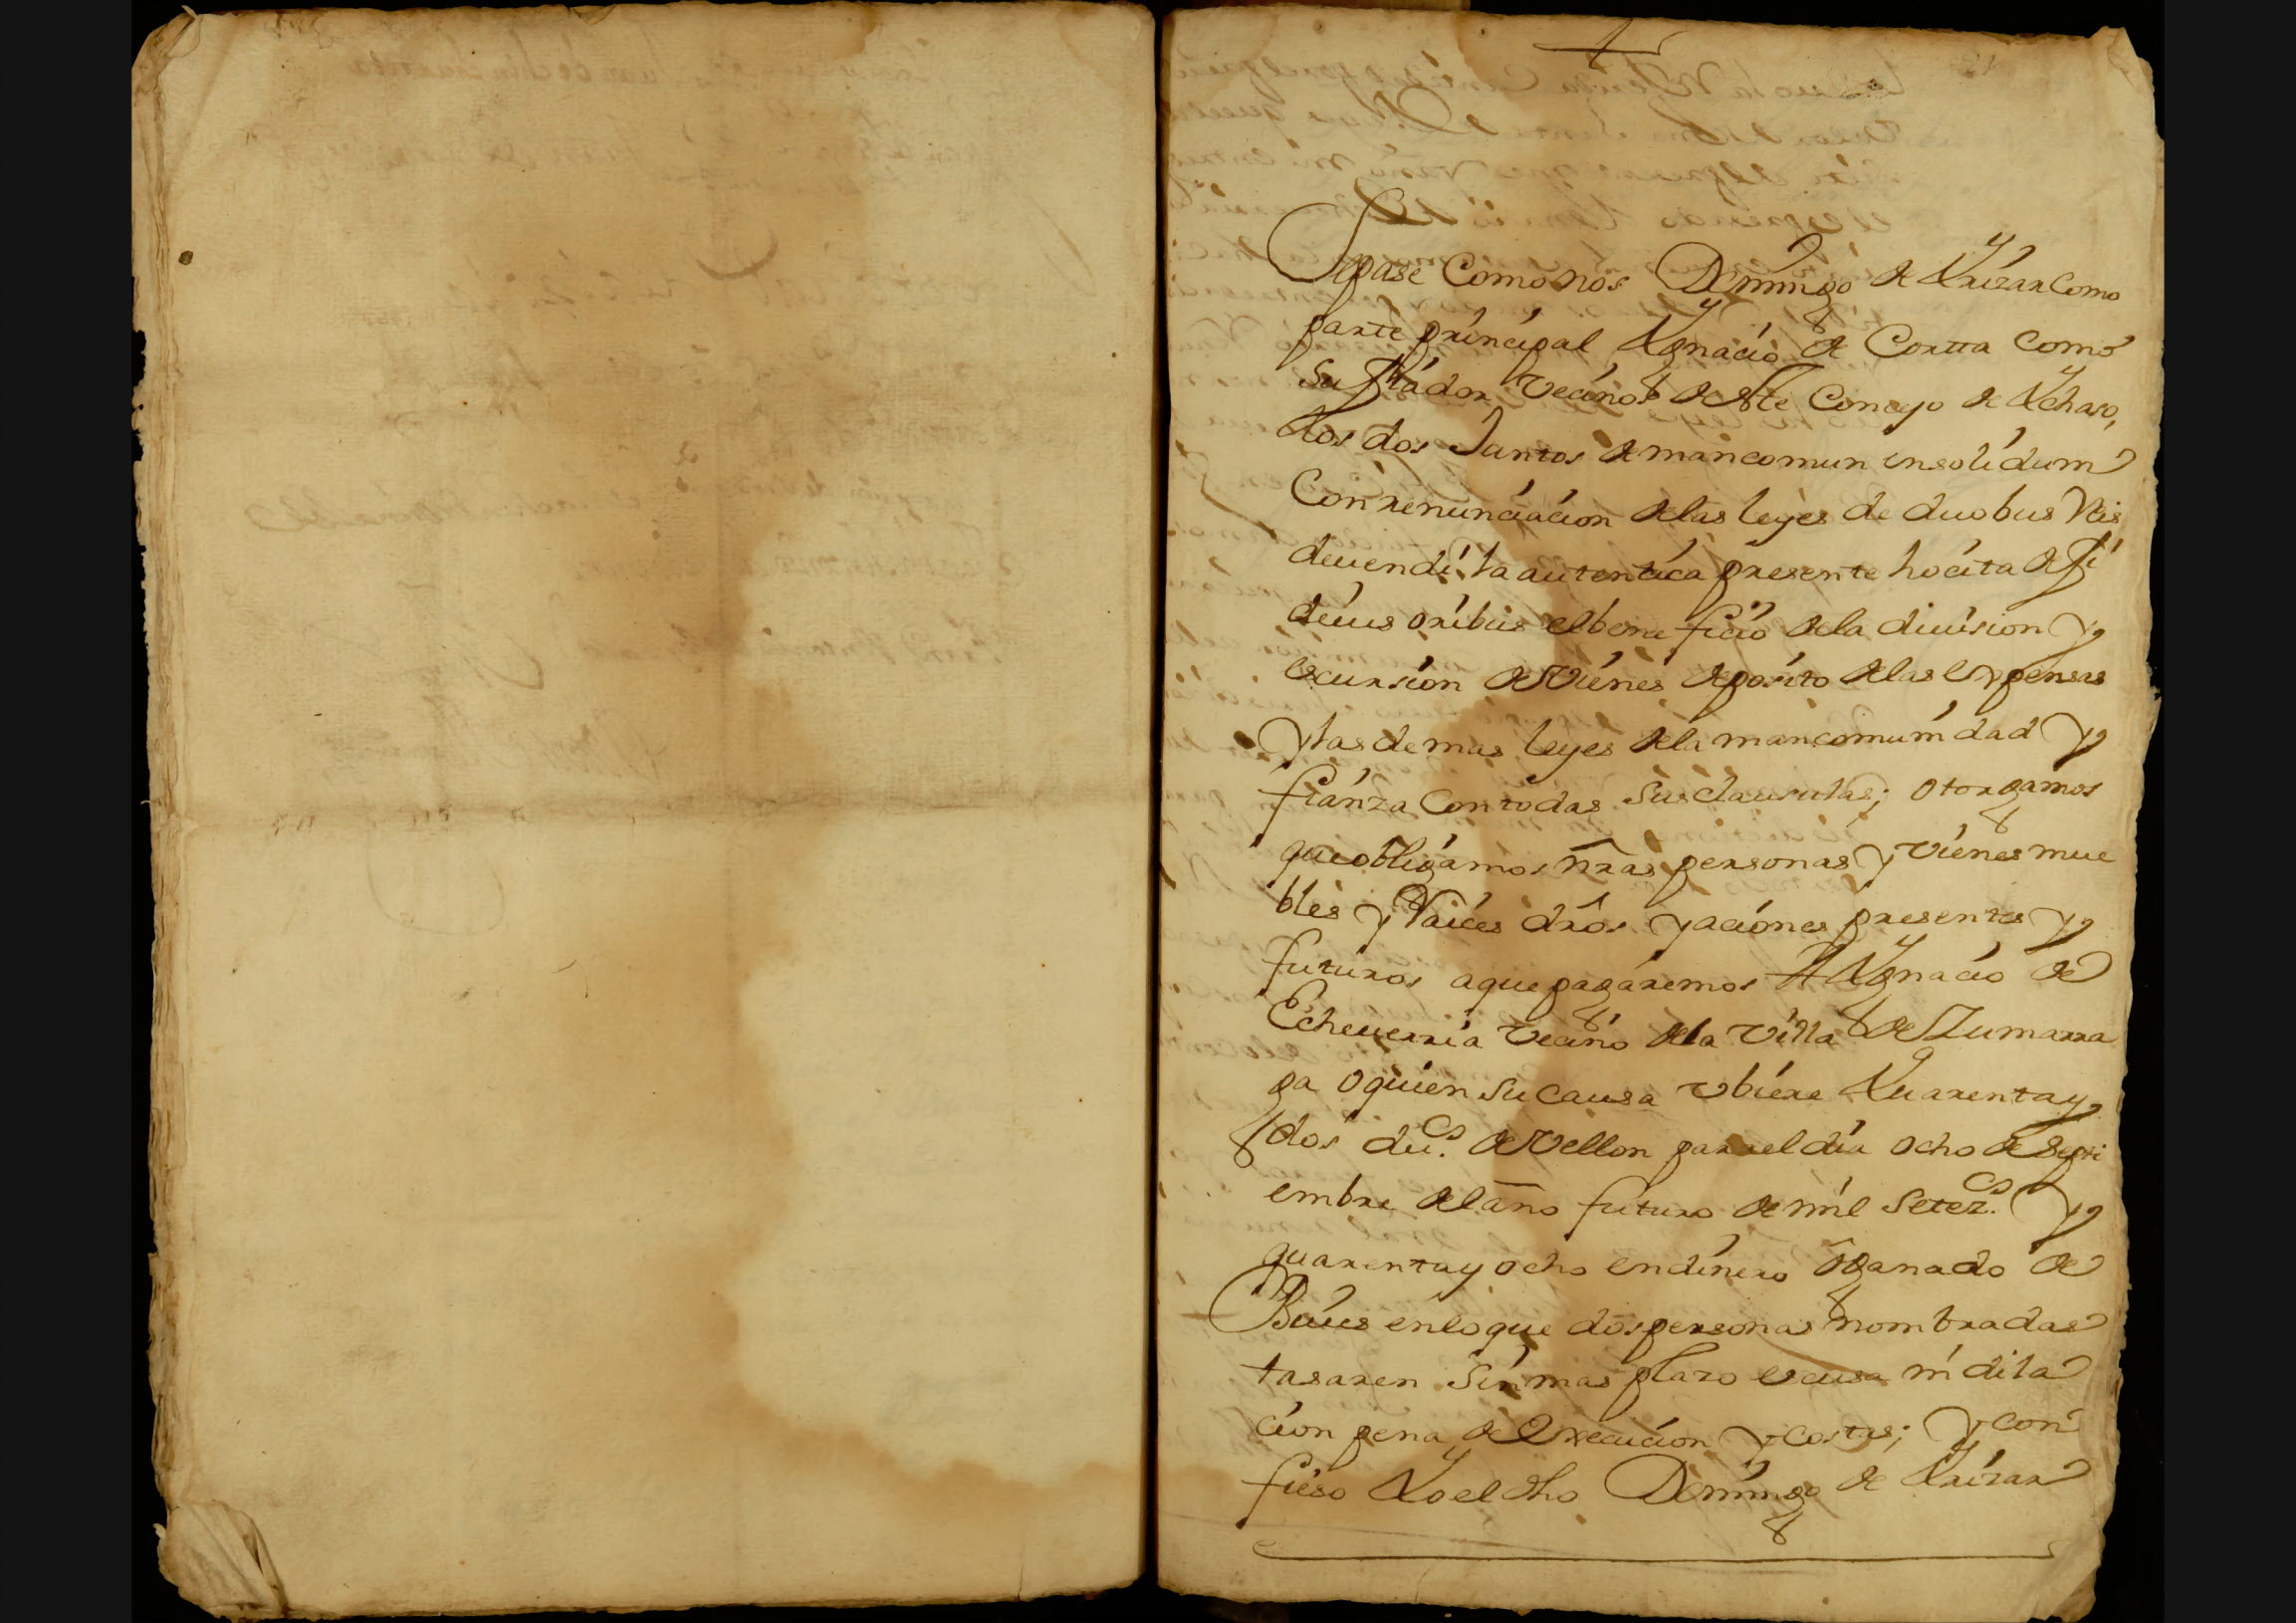 Sepase como nos Domingo de Yrizar como
parte principal Ygnacio de Cortta como
su fiador vecinos de este Concejo de Ychaso,
los dos Juntos de mancomun insolidum
Con renunciacion de las leyes de duobus Reis
deuendi la autentica presente hocita de fi
deius oribus el beneficio de la diuision y
escursion de vienes deposito de las expensas
y las demas leyes de la mancomunidad y
fianza con todas sus clausulas; otorgamos
que obligamos nras personas y vienes mue
bles y Raices dros y aciones presentes y
futuros a que pagaremos A Ygnacio de
Echeuerria vecino de la villa de Zumarra
ga o quien su causa vbiere Quarenta y
dos du.cs de vellon para el dia ocho de Septi
embre del año futuro de mil setez.cs y
quarenta y ocho en dinero o ganado de
Bacuno en lo que dos personas nombradas
tasaren sin mas plazo escusa ni dila
cion pena de execucion y costas; y con
fieso Yo el dho Domingo de Yrizar